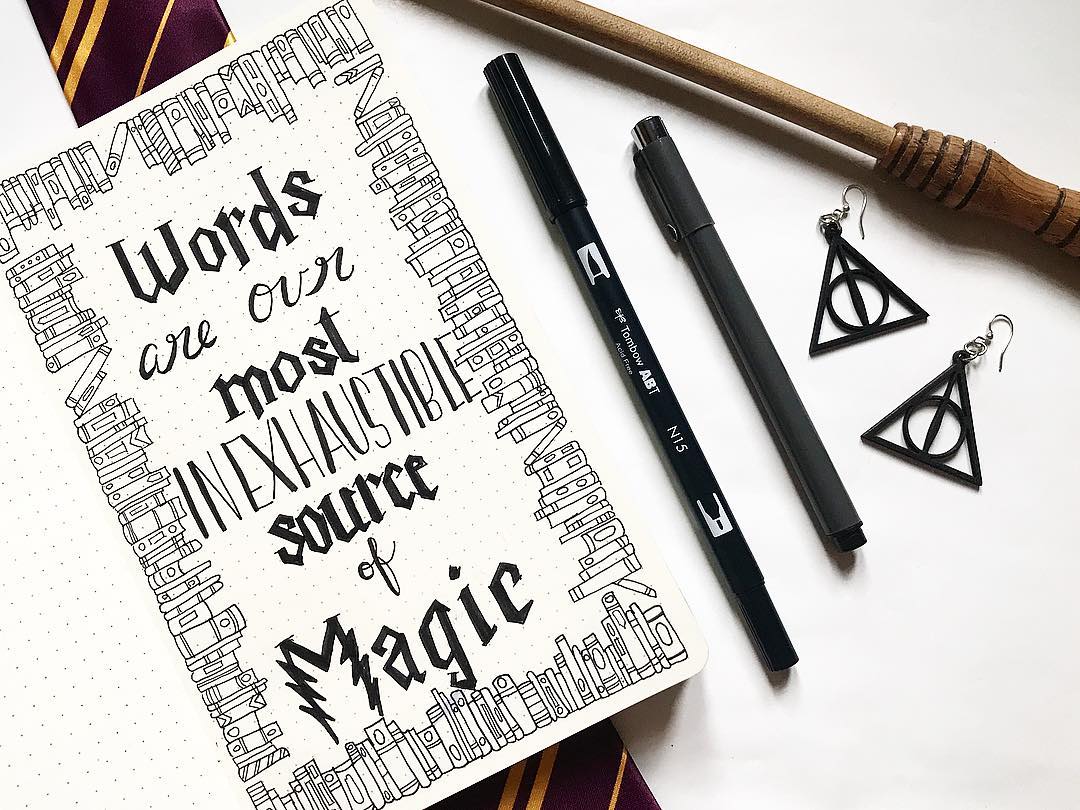 Words
are our
most
INEXHAUSTIBLE
source
of
Magic
Tombow ABT
Acid Free
N15